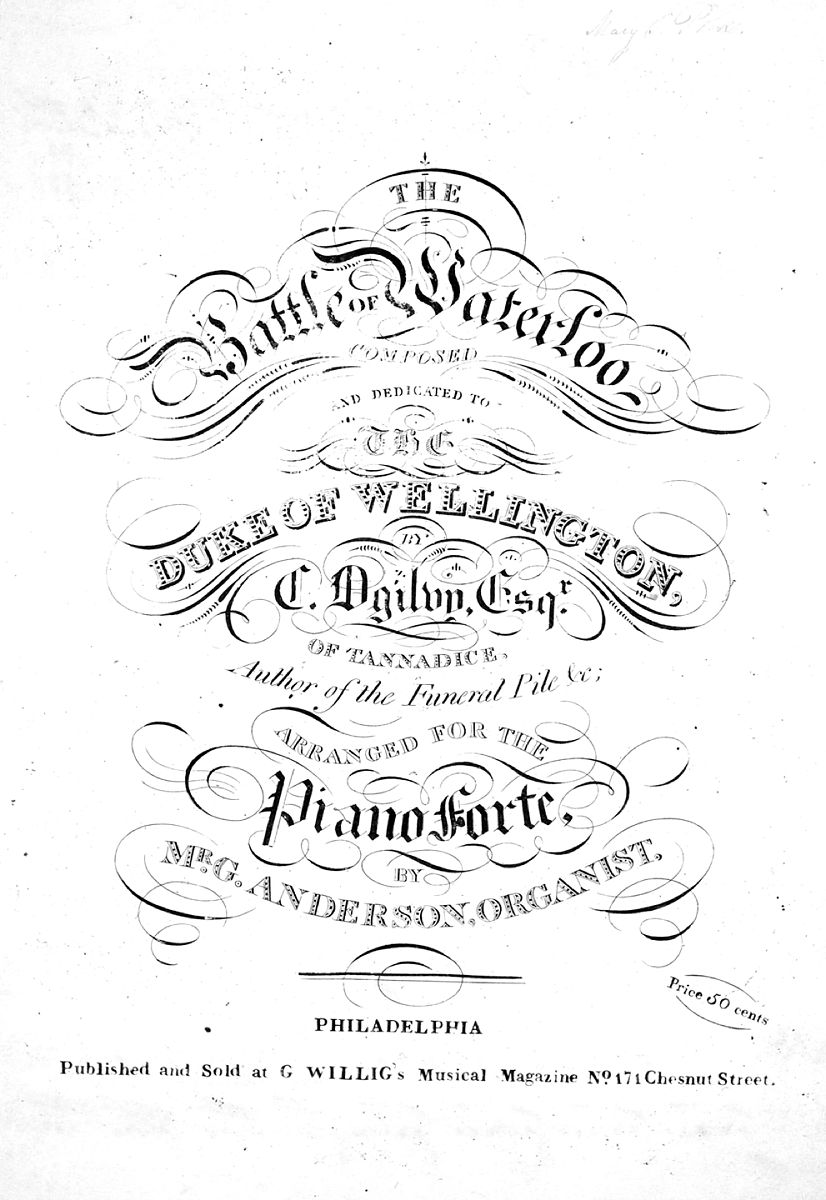 THE
Battle OF Waterloo
COMPOSED
AND DEDICATED TO
THE
DUKE OF WELLINGTON,
BY
C. Ogilvy, Esqr.
OF TANNADICE,
Author of the Funeral Pile &c;
ARRANGED FOR THE
Piano Forte,
BY
MR. G. ANDERSON, ORGANIST.
Price 50 cents
PHILADELPHIA
Published and Sold at G WILLIG's Musical Magazine No. 171 Chesnut Street.